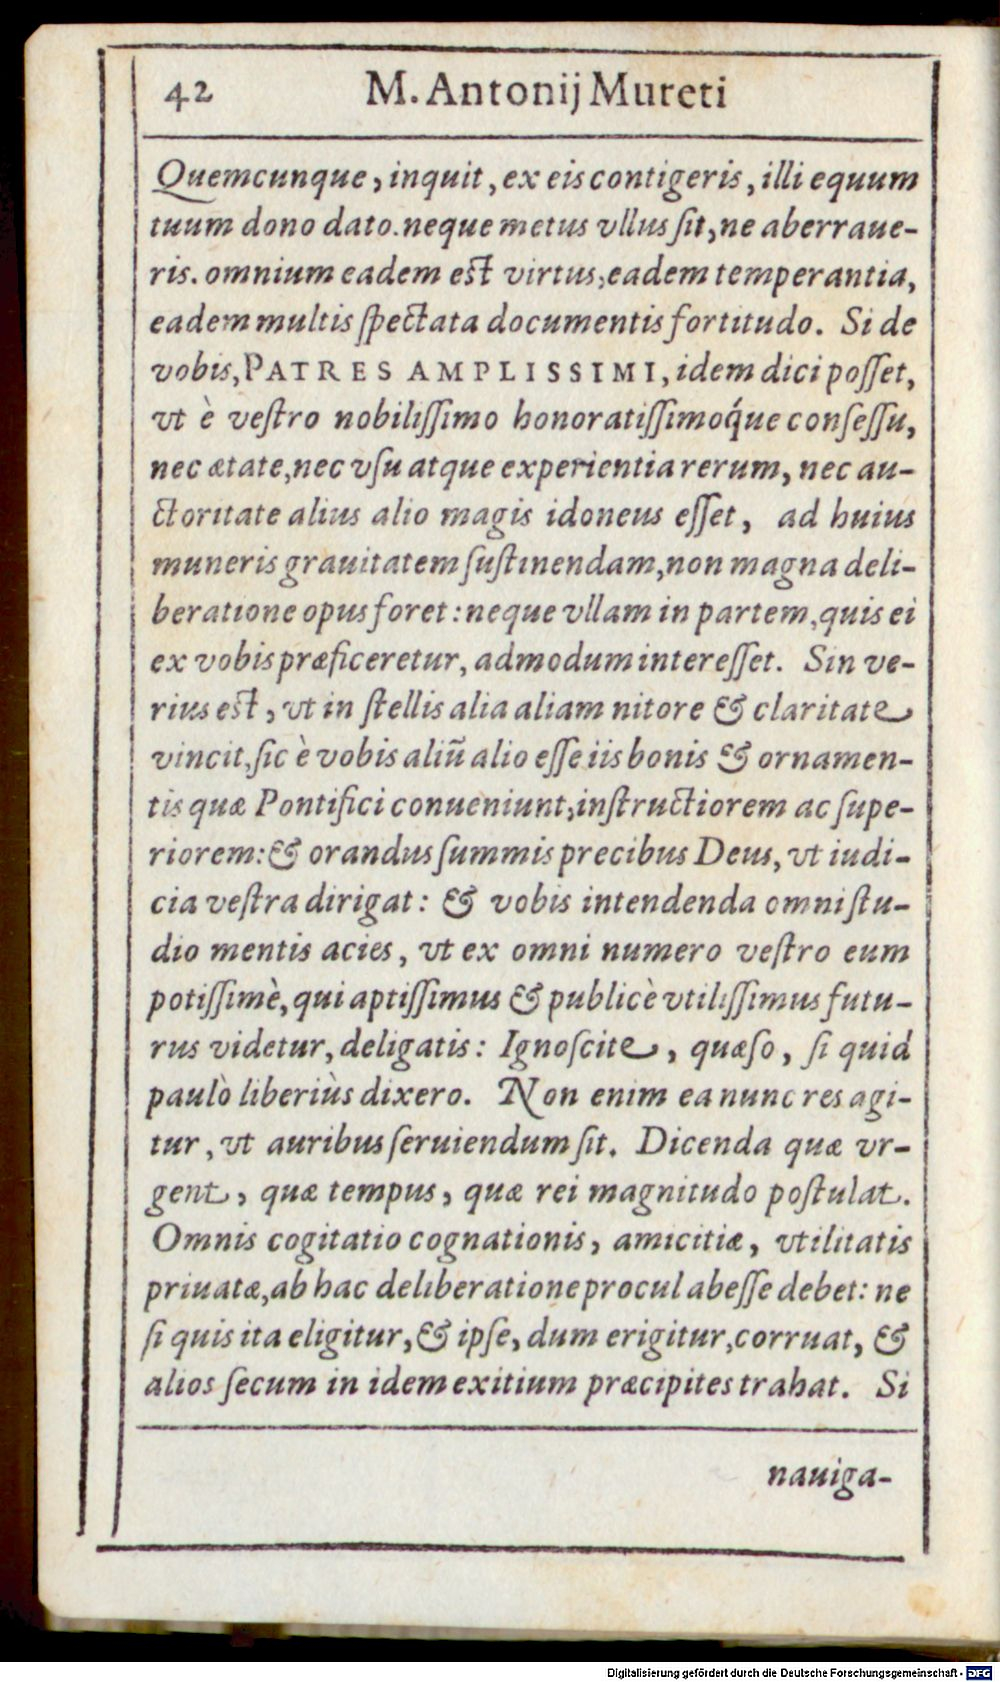 42 M. Antonij Mureti
Quemcunque, inquit, ex eis contigeris, illi equum
tuum dono dato. neque metus vllus ſit, ne aberraue-
ris. omnium eadem est virtus, eadem temperantia,
eadem multis ſpectata documentis fortitudo. Si de
vobis, PATRES AMPLISSIMI, idem dici poſſet,
vt è veſtro nobiliſſimo honoratiſſimoq́ue conſeſſu,
nec ætate, nec vſu atque experientia rerum, nec au-
ctoritate alius alio magis idoneus eſſet, ad huius
muneris grauitatem ſuſtinendam, non magna deli-
beratione opus foret: neque vllam in partem, quis ei
ex vobis præficeretur, admodum intereſſet. Sin ve-
rius est, vt in ſtellis alia aliam nitore & claritate
vincit, ſic è vobis aliũ alio eſſe iis bonis & ornamen-
tis quæ Pontifici conueniunt, inſtructiorem ac ſupe-
riorem: & orandus ſummis precibus Deus, vt iudi-
cia veſtra dirigat: & vobis intendenda omni ſtu-
dio mentis acies, vt ex omni numero veſtro eum
potiſſimè, qui aptiſſimus & publicè vtiliſſimus futu-
rus videtur, deligatis: Ignoſcite, quæſo, ſi quid
paulò liberiùs dixero. Non enim ea nunc res agi-
tur, vt auribus ſeruiendum ſit. Dicenda quæ vr-
gent, quæ tempus, quæ rei magnitudo poſtulat.
Omnis cogitatio cognationis, amicitiæ, vtilitatis
priuatæ, ab hac deliberatione procul abeſſe debet: ne
ſi quis ita eligitur, & ipſe, dum erigitur, corruat, &
alios ſecum in idem exitium præcipites trahat. Si
nauiga-
Digitalisierung gefördert durch die Deutsche Forschungsgemeinschaft - DFG